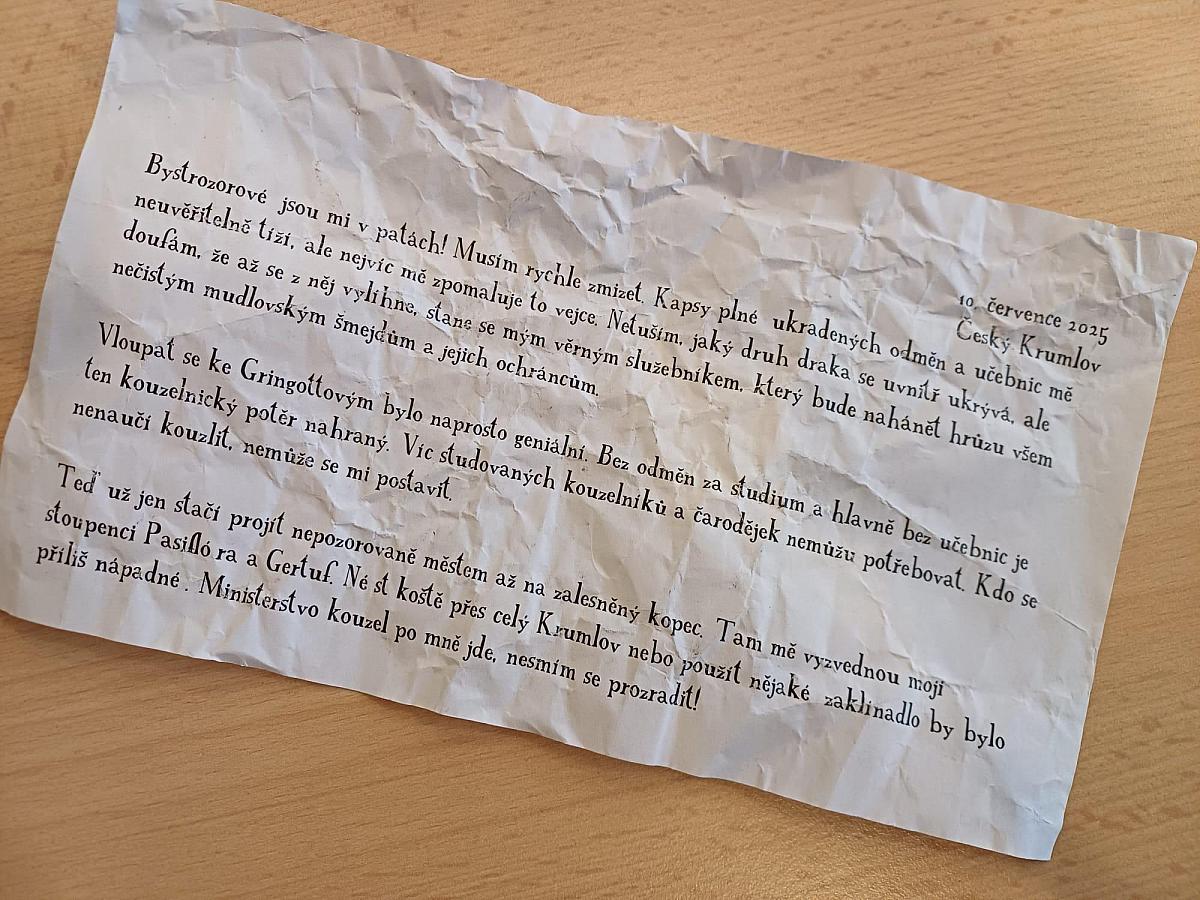 10. července 2025
Český Krumlov
Bystrozorové jsou mi v patách! Musím rychle zmizet. Kapsy plné ukradených odměn a učebnic mě
neuvěřitelně tíží, ale nejvíc mě zpomaluje to vejce. Netuším, jaký druh draka se uvnitř ukrývá, ale
doufám, že až se z něj vylíhne, stane se mým věrným služebníkem, který bude nahánět hrůzu všem
nečistým mudlovským šmejdům a jejich ochráncům.
Vloupat se ke Gringottovým bylo naprosto geniální. Bez odměn za studium a hlavně bez učebnic je
ten kouzelnický potěr nahraný. Víc studovaných kouzelníků a čarodějek nemůžu potřebovat. Kdo se
nenaučí kouzlit, nemůže se mi postavit.
Teď už jen stačí projít nepozorovaně městem až na zalesněný kopec. Tam mě vyzvednou moji
stoupenci Pasifló ra a Gertuf. Né st koště přes celý Krumlov nebo použít nějaké zaklinadlo by bylo
příliš nápadné . Ministerstvo kouzel po mně jde, nesmím se prozradit!